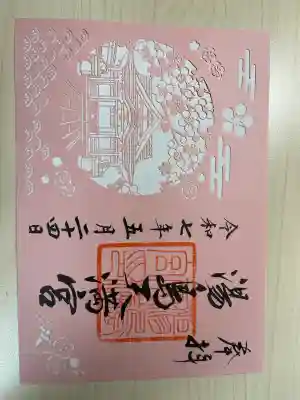 奉拝
湯島天満宮
令和七年五月二十四日